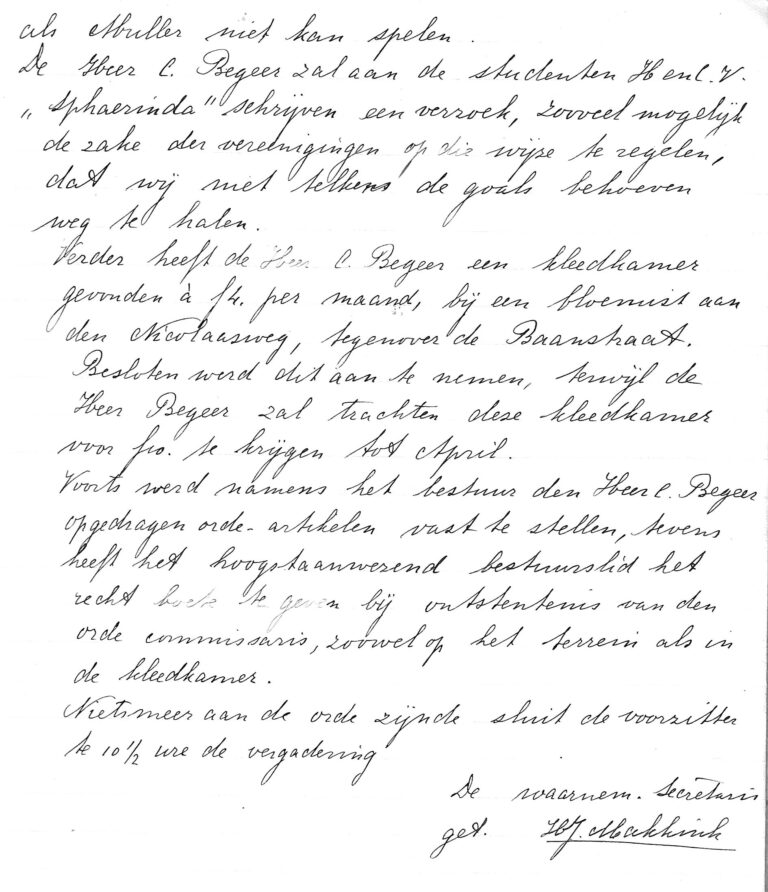 als Muller niet kan spelen.
De Heer C. Begeer zal aan de studenten H en C.V.
„Sphaerinda" schrijven een verzoek, zooveel mogelijk
de zake der vereenigingen op die wijze te regelen,
dat wij niet telkens de goals behoeven
weg te halen.
Verder heeft de Heer C. Begeer een kleedkamer
gevonden à f4. per maand, bij een bloemist aan
den Nicolaasweg, tegenover de Baanstraat.
Besloten werd dit aan te nemen, terwijl de
Heer Begeer zal trachten deze kleedkamer
voor f10. te krijgen tot April.
Voorts werd namens het bestuur den Heer C. Begeer
opgedragen orde-artikelen vast te stellen, tevens
heeft het hoogstaanwezend bestuurslid het
recht boete te geven bij ontstentenis van den
orde commissaris, zoowel op het terrein als in
de kleedkamer.
Niets meer aan de orde zijnde sluit de voorzitter
te 10 1/2 ure de vergadering
De waarnem. Secretaris
get. HJ. Makkink